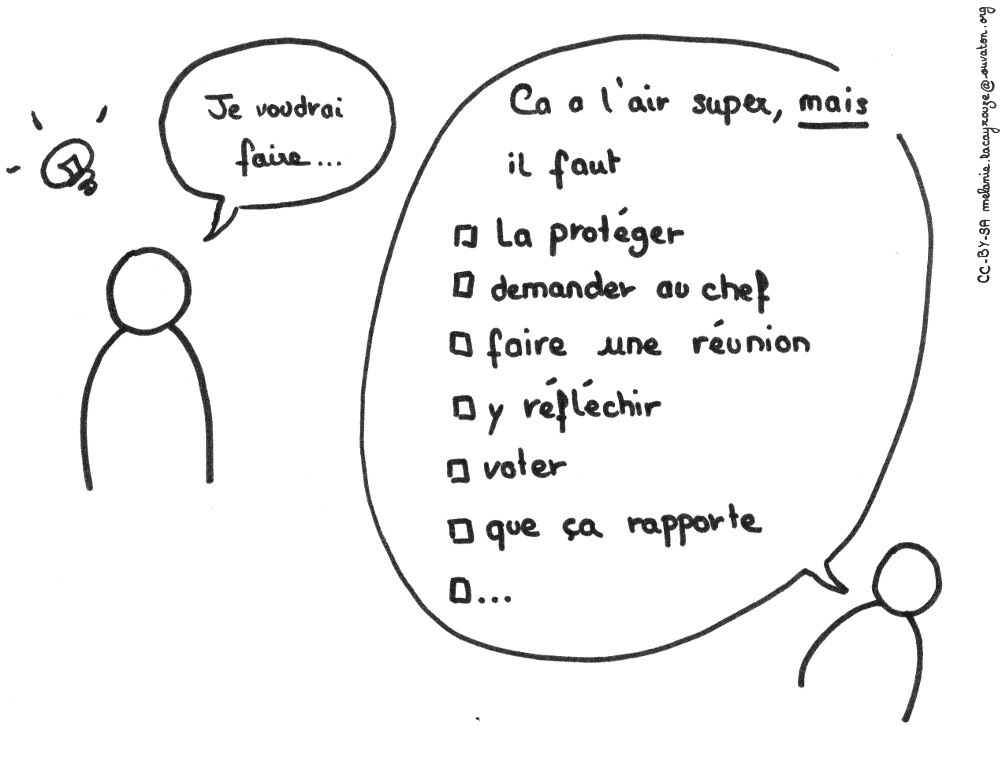 Je voudrai
faire...
Ca a l'air super, mais
il faut
La protéger
demander au chef
faire une réunion
y réfléchir
voter
que ça rapporte
...
CC-BY-SA melanie.lacayrouze@ouvaton.org